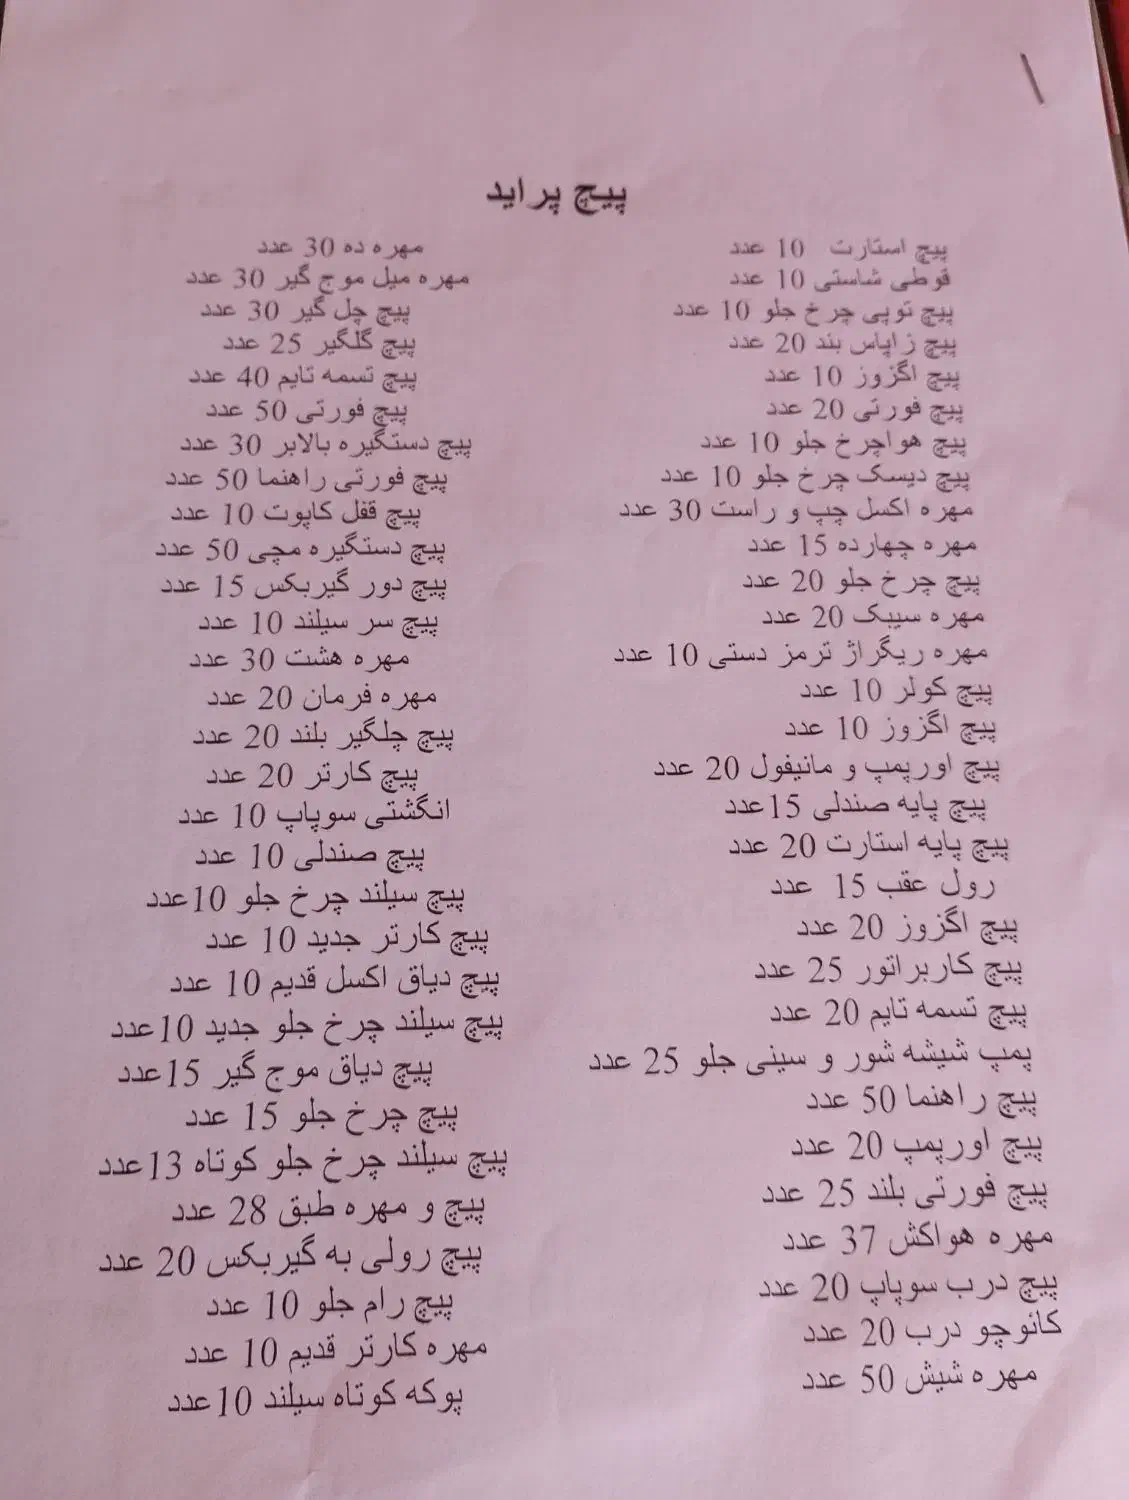 پیچ پراید
پیچ استارت 10 عدد
قوطی شاستی 10 عدد
پیچ توپی چرخ جلو 10 عدد
پیچ زاپاس بند 20 عدد
پیچ اگزوز 10 عدد
پیچ فورتی 20 عدد
پیچ هواچرخ جلو 10 عدد
پیچ دیسک چرخ جلو 10 عدد
مهره اکسل چپ و راست 30 عدد
مهره چهارده 15 عدد
پیچ چرخ جلو 20 عدد
مهره سیبک 20 عدد
مهره ریگراژ ترمز دستی 10 عدد
پیچ کولر 10 عدد
پیچ اگزوز 10 عدد
پیچ اورپمپ و مانیفول 20 عدد
پیچ پایه صندلی 15عدد
پیچ پایه استارت 20 عدد
رول عقب 15 عدد
پیچ اگزوز 20 عدد
پیچ کاربراتور 25 عدد
پیچ تسمه تایم 20 عدد
پمپ شیشه شور و سینی جلو 25 عدد
پیچ راهنما 50 عدد
پیچ اورپمپ 20 عدد
پیچ فورتی بلند 25 عدد
مهره هواکش 37 عدد
پیچ درب سوپاپ 20 عدد
کائوچو درب 20 عدد
مهره شیش 50 عدد
مهره ده 30 عدد
مهره میل موج گیر 30 عدد
پیچ چل گیر 30 عدد
پیچ گلگیر 25 عدد
پیچ تسمه تایم 40 عدد
پیچ فورتی 50 عدد
پیچ دستگیره بالابر 30 عدد
پیچ فورتی راهنما 50 عدد
پیچ قفل کاپوت 10 عدد
پیچ دستگیره مچی 50 عدد
پیچ دور گیربکس 15 عدد
پیچ سر سیلند 10 عدد
مهره هشت 30 عدد
مهره فرمان 20 عدد
پیچ چلگیر بلند 20 عدد
پیچ کارتر 20 عدد
انگشتی سوپاپ 10 عدد
پیچ صندلی 10 عدد
پیچ سیلند چرخ جلو 10عدد
پیچ کارتر جدید 10 عدد
پیچ دیاق اکسل قدیم 10 عدد
پیچ سیلند چرخ جلو جدید 10عدد
پیچ دیاق موج گیر 15عدد
پیچ چرخ جلو 15 عدد
پیچ سیلند چرخ جلو کوتاه 13عدد
پیچ و مهره طبق 28 عدد
پیچ رولی به گیربکس 20 عدد
پیچ رام جلو 10 عدد
مهره کارتر قدیم 10 عدد
پوکه کوتاه سیلند 10عدد